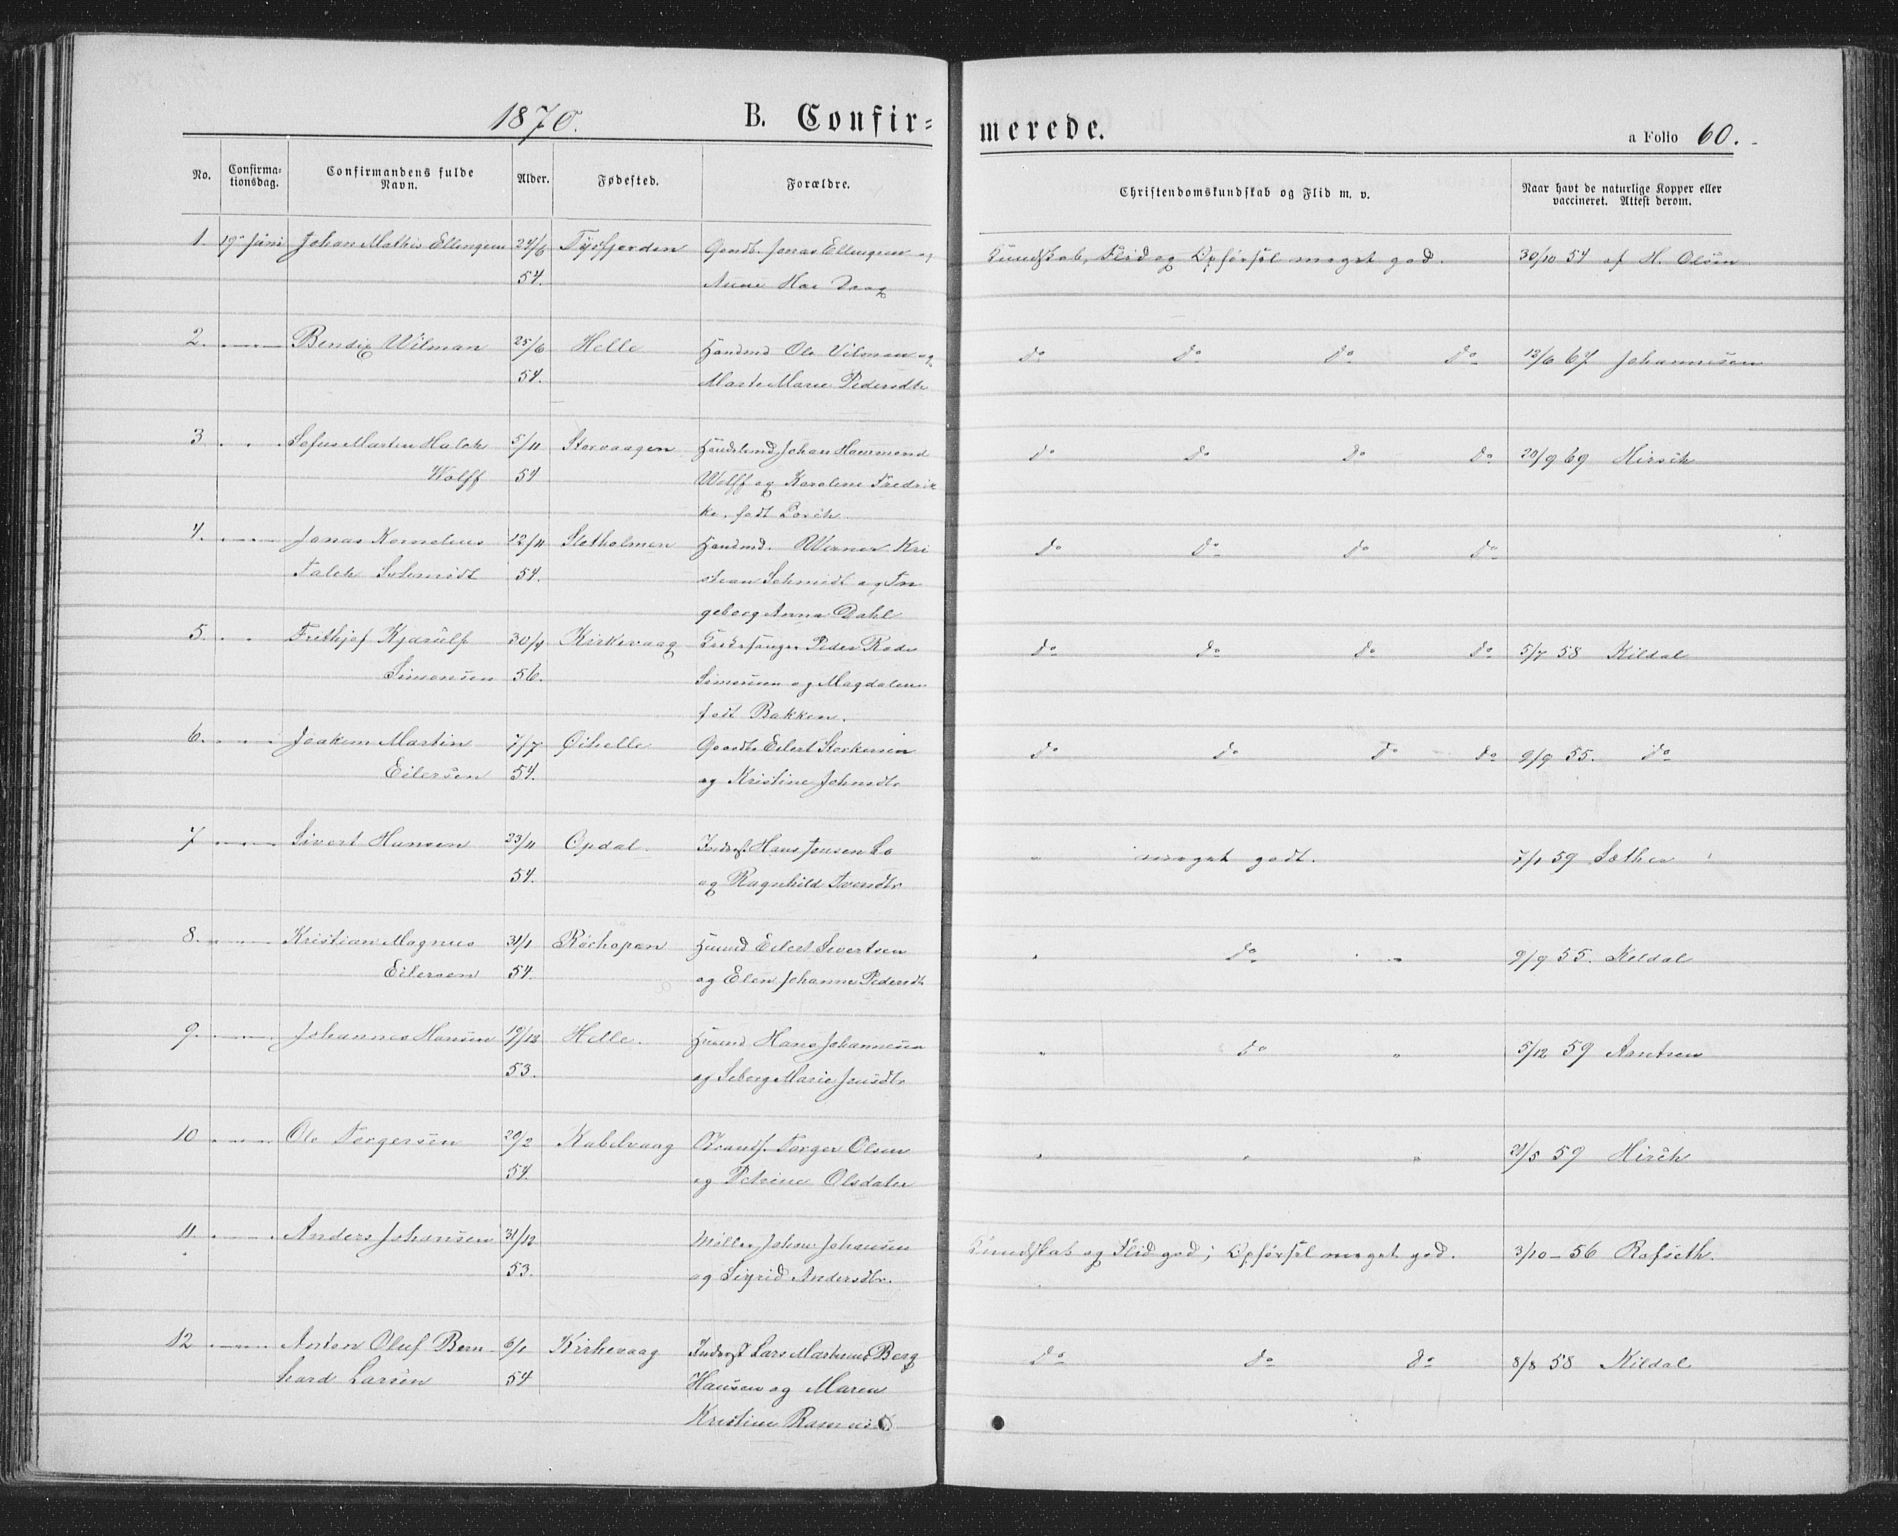 1870. B. Confir=
merede. a Folio 60.
No. Confirma=tionsdag. Confirmandens fulde Navn. Alder. Fødested. Forældre. Christendomskundskab og Flid m. v. Naar havt de naturlige Kopper eller vaccineret. Attest derom.
1. 19de Juni Johan Mathis Ellingsen 24/6 Tysfjorden Gaardbr. Jonas Ellingsen og Kundskab, Flid og Opførsel meget god. 30/10 54 af H. Olsen
54. Anne
2. Bendix Wilman 25/6 Helle Huusmd Ole Vilman og Do Do Do Do 12/6 67 Johannesen
54. Marte Marie Pedersdtr
3 Sofus Martin Halck 5/11 Storvaagen Handelsmd Johan Hammond Do Do Do Do 20/9 69 Hirsch
Wolff 54 Wolff og Karoline Fredrik
ke, født Lorch
4. Jonas Kornelius 12/11 Sletholmen Huusmd. Werner Kri Do Do Do Do
Falck Schmidt 54. stian Schmidt og In
geborg Anna Dahl
5. Frithjof Kjærulf 30/9 Kirkevaag Kirkesanger Peder Rode Do Do Do Do 5/7 58 Kildal
Simonsen 56. Simonsen og Magdalene
født Bakken.
6. Joakim Martin 7/7 Øihelle Gaardbr Eilert Storkersen Do Do Do Do 9/9 55. Do
Eilersen 54. og Kristine Johnsdtr
7 Sivert Hansen 23/11 Opdal. Inderst Hans Jonsen Lo " meget godt. 7/1 59 Sæther
54. og Ragnhild Iversdtr
8. Kristian Magnus 31/1 Rækøpan Huusmd Eilert Sivertsen " Do " 9/9 55. Kildal
Eilersen 54. og Elen Johanna Pedersdtr
9. Johannes Hansen 19/12 Helle. Huusmd Hans Johannesen " Do " 5/12 59 Arntsen
53. og Seborg Marie Jensdtr
10 Ole Torgersen 20/2 Kabelvaag Strands. Torger Olsen " " " 21/5 59 Hirsch
54. og Petrine Olsdater
11. Anders Johansen 31/12 Møller Johan Johansen Kundskab og Flid god; Opførsel meget god. 3/10 - 56 Rafseth.
53. og Sigrid Andersdtr.
12 Anton Oluf Bern 6/1 Kirkevaag Inderst Lars Martinus Berg Do Do Do 8/8 58 Kildal
hard Larsen 54 Hansen og Maren
Kristine